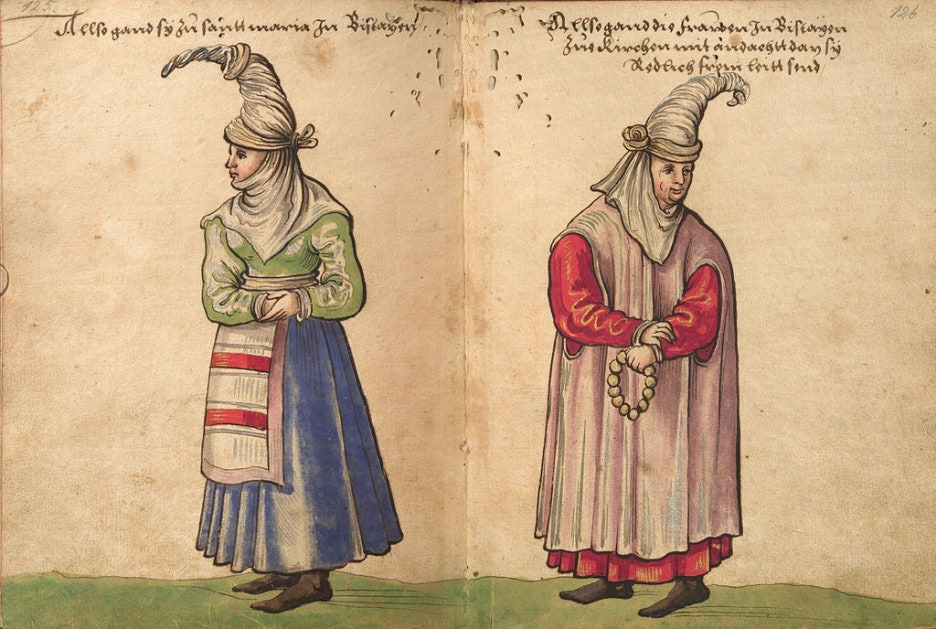 125.
Allso gand sy zu santt maria In Bistayen
126
Allso gand die frawen In Bistayen
zue Kirchen mit andachtt dan sy
Redlich frum leitt send